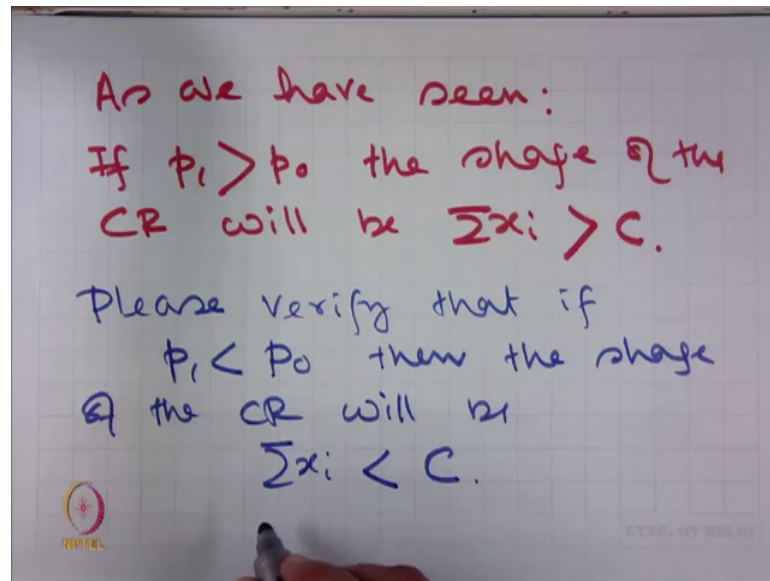 As we have seen:
If p₁ > p₀ the shape of the
CR will be Σxᵢ > C.
Please verify that if
p₁ < p₀ then the shape
of the CR will be
Σxᵢ < C.
NPTEL
ETSC, IIT DELHI